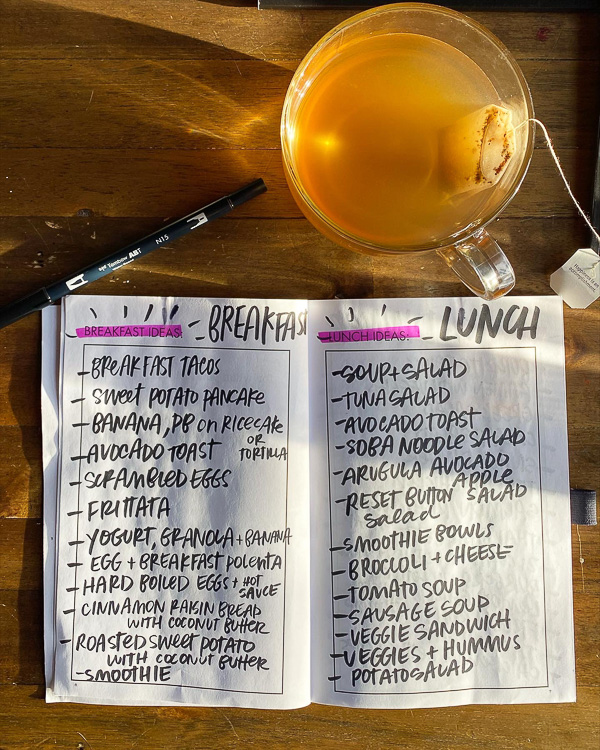 Tombow ABT N15
BREAKFAST IDEAS:
BREAKFAST
-BREAKFAST TACOS
-SWEET POTATO PANCAKE
-BANANA, PB on RICECAKE
OR
TORTILLA
-AVOCADO TOAST
-SCRAMBLED EGGS
-FRITTATA
-YOGURT, GRANOLA + BANANA
-EGG + BREAKFAST POLENTA
-HARD BOILED EGGS + HOT
SAUCE
-CINNAMON RAISIN BREAD
WITH COCONUT BUTTER
-ROASTED SWEET POTATO
WITH COCONUT BUTTER
-SMOOTHIE
LUNCH IDEAS:
LUNCH
-SOUP + SALAD
-TUNA SALAD
-AVOCADO TOAST
-SOBA NOODLE SALAD
-ARUGULA AVOCADO
APPLE
SALAD
-RESET BUTTON
Salad
-SMOOTHIE BOWLS
-BROCCOLI + CHEESE
-TOMATO SOUP
-SAUSAGE SOUP
-VEGGIE SANDWICH
-VEGGIES + HUMMUS
-POTATO SALAD